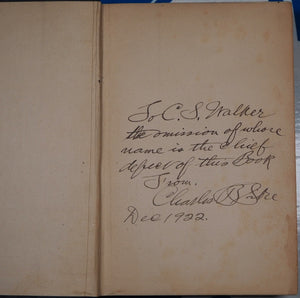 To C. S. Walker
the omission of whose
name is the chief
defect of this book
From.
Charles B
Dec 1922.